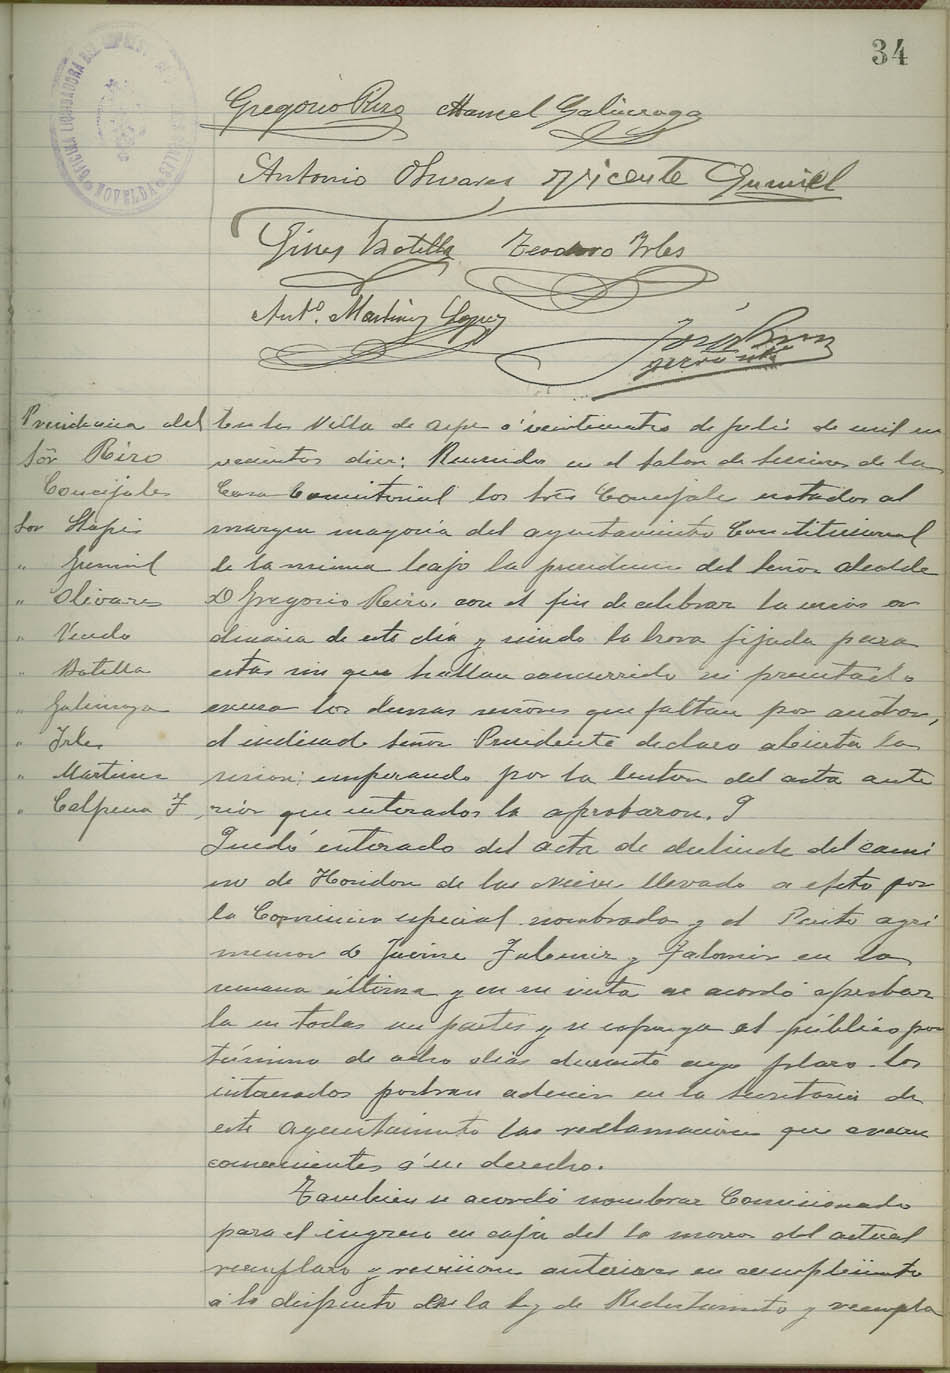 34
OFICINA LIQUIDADORA DEL IMPUESTO DE
NOVELDA
Gregorio Rizo Manuel Galiñroga
Antonio Olivares Vicente Gumiel
Gines Botella Teodoro Irles
Antº. Martinez Lopez
José
Presidencia del
Sōr Rizo
Concejales
Sor Stapis
" Gumiel
" Olivares
" Verdu
" Botella
" Galiñroga
" Irles
" Martinez
" Calpena F
En la Villa de Aspe a veinticuatro de Julio de mil no
vecientos diez: Reunidos en el salon de sesiones de la
Casa Consistorial los Srēs Concejales notados al
margen mayoria del ayuntamiento Constitucional
de la misma bajo la presidencia del señor alcalde
D Gregorio Rizo, con el fin de celebrar la sesion or
dinaria de este dia y siendo la hora fijada para
estas sin que hallan concurrido ni presentado
excusa los demas señores que faltan por
el indicado Señor Presidente declaro abierta la
sesion: empezando por la lectura del acta ante
rior que enterados la aprobaron.
Quedó enterado del acta de deslinde del cami
no de Hondon de las Nieves llevado a efecto por
la Comision especial nombrada y el Perito agri
mensor D Jaime en la
semana última y en su vista se acordó aprobar
la en todas sus partes y se exponga al público por
término de ocho dias durante cuyo plazo los
interesados podran aducir en la Secretaria de
este ayuntamiento las reclamaciones que crean
convenientes á su derecho.
Tambien se acordó nombrar Comisionado
para el ingreso en caja del los mozos del actual
reemplazo y revisiones anteriores en cumplimiento
a lo dispuesto en la ley de Reclutamiento y reempla